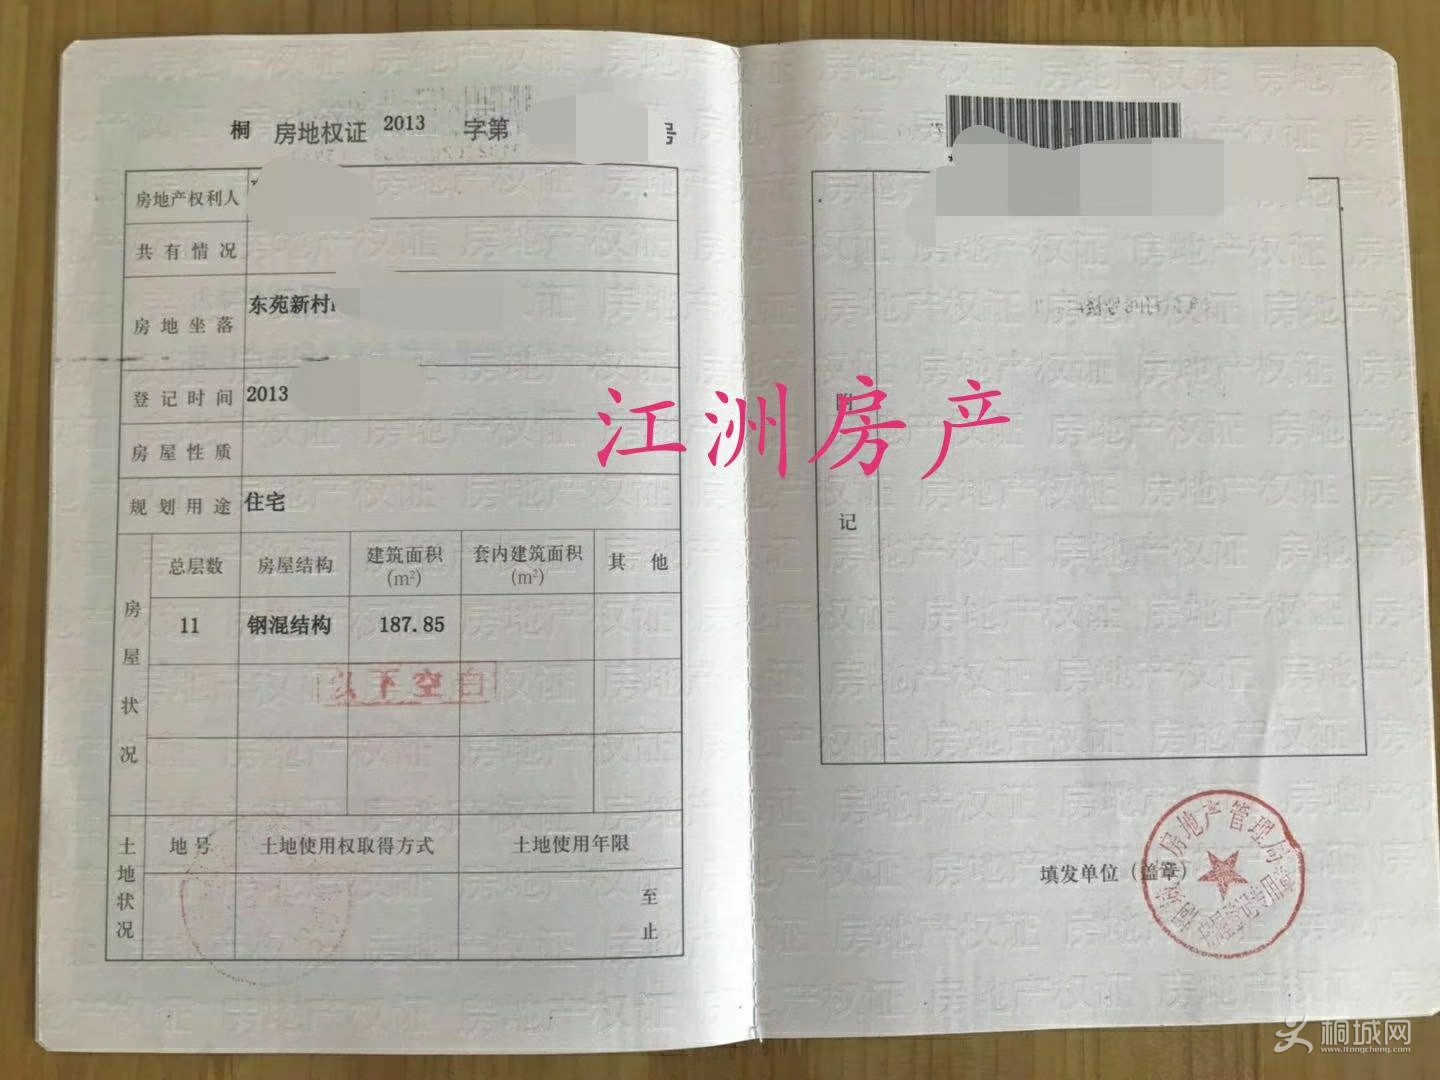 桐 房地权证 2013 字第 号
房地产权利人
共有情况
房地坐落 东苑新村
登记时间 2013
房屋性质
规划用途 住宅
房屋状况
总层数 房屋结构 建筑面积(m²) 套内建筑面积(m²) 其他
11 钢混结构 187.85
以下空白
土地状况
地号 土地使用权取得方式 土地使用年限
至
止
附
记
江洲房产
填发单位（盖章）
房地产管理局
房屋登记专用章
桐城网
www.itongcheng.com